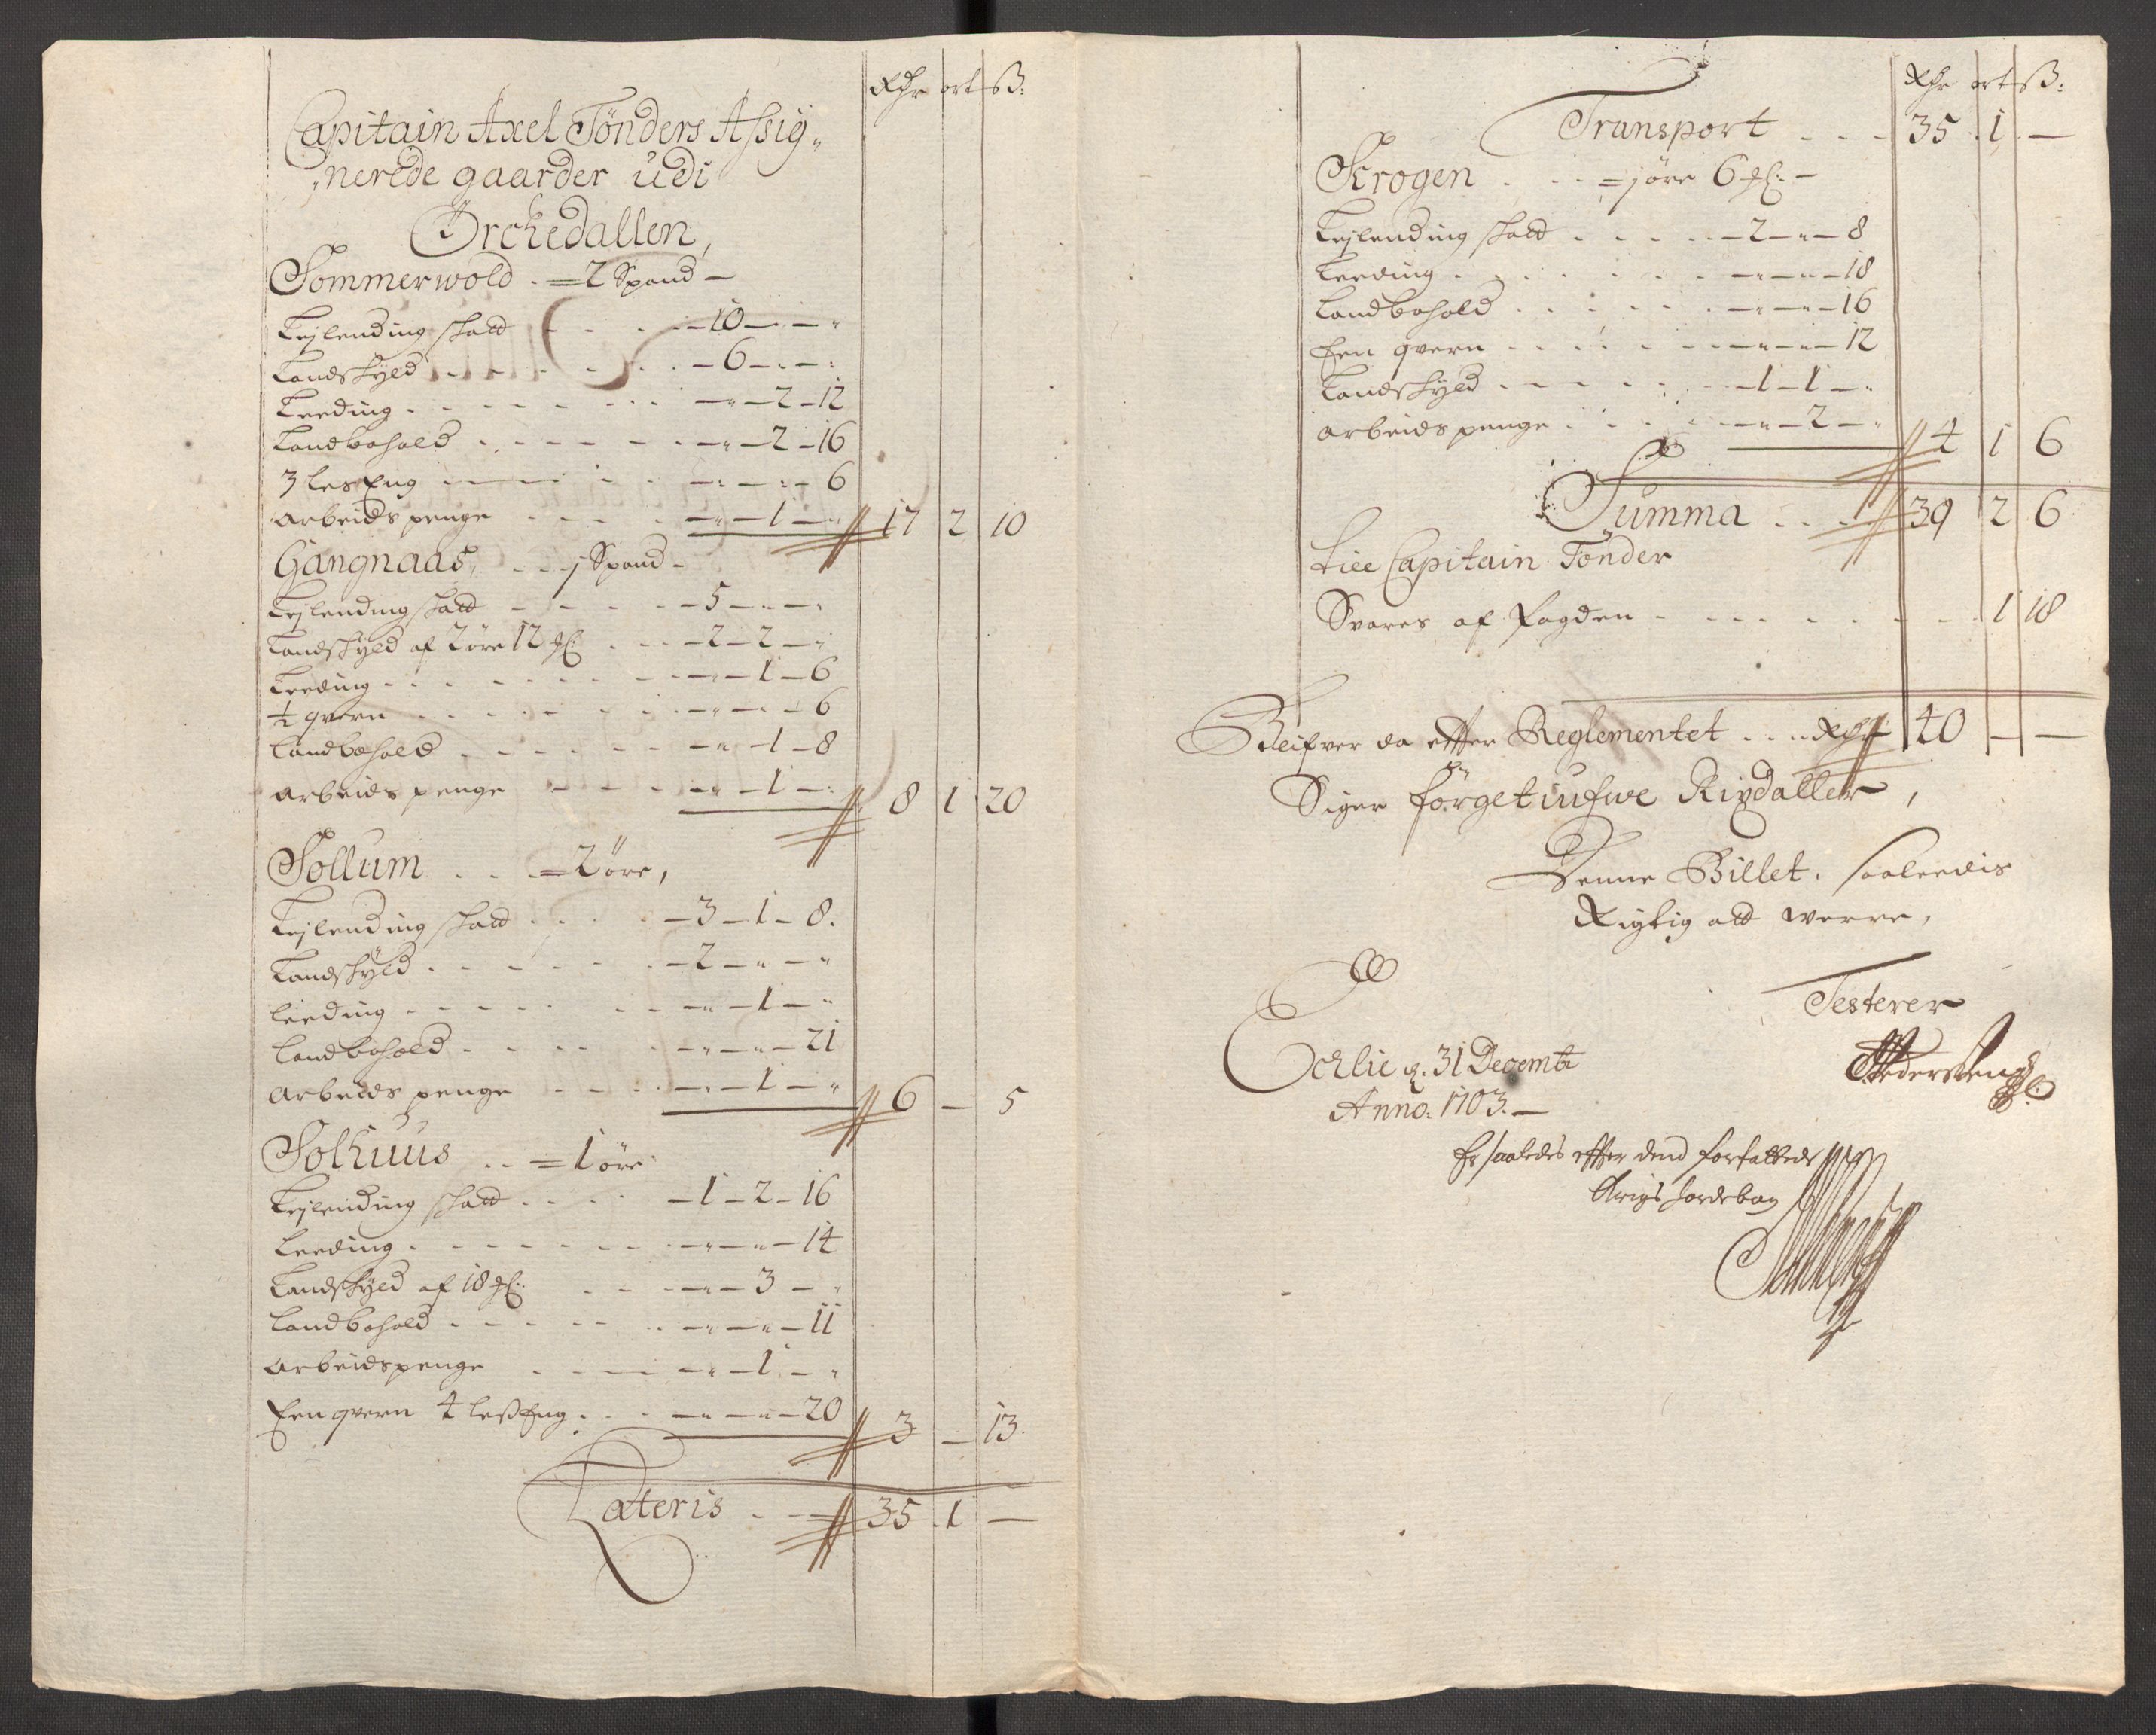 Rdr ort ß:
Capitain Axel Tønders Assig„
„nerede gaarder udi
Orckedallen,
Sommerwold . = 2 Spand –
Leylending skatt . . . . – 10 – „ – „
Landskyld . . . . . . – 6 – „ – „
Leeding . . . . . . . – „ – 2 – 12
Landbohold . . . . . . – „ – 2 – 16
3 les Eng . . . . . – „ – „ – 6
Arbeids penge . . . . – „ – 1 – „ 17 2 10
Gangnaas, . . j Spand –
Leylending skatt . . . . – 5 – „ – „
Landskyld af 2 øre 12 ß . . . – 2 – 2 – „
Leeding . . . . . . . – „ – 1 – 6
½ qvern . . . . . . – „ – „ – 6
Landbohold . . . . . . – „ – 1 – 8
Arbeids penge . . . . – „ – 1 – „ 8 1 20
Sollum . . . = 2 øre,
Leylending skatt . . . . – 3 – 1 – 8.
Landskyld . . . . . . – 2 – „ – „
Leeding . . . . . . – „ – 1 – „
Landbohold . . . . . – „ – „ – 21
Arbeids penge . . . . – „ – 1 – „ 6 – 5
Solhuus . . = 1 øre
Leylending skatt . . . . – 1 – 2 – 16
Leeding . . . . . . . – „ – „ – 14
Landskyld af 18 ß . . . – „ – 3 – „
Landbohold . . . . . . – „ – „ – 11
Arbeidspenge . . . . – „ – 1 – „
Een qvern 4 less Eng . . . – „ – „ – 20 3 – 13
Lateris . . . 35 . 1 –
Rdr ort ß:
Transport . . . 35 . 1 . –
Krogen . . . = j øre 6 ß. –
Leylending skatt . . . . . – 2 – „ – 8
Leeding . . . . . . . – „ – „ – 18
Landbohold . . . . . . – „ – „ – 16
Een qvern . . . . . . – „ – „ – 12
Landskyld . . . . . . – 1 – 1 – „
Arbeids penge . . . . . – „ – 2 – „ 4 1 6
Summa . . . 39 2 6
Capitain Tønder
Svares af fogden . . . . . . . . 1 18
Bleifver da efter Reglementet . . . Rdr 40 – –
Siger førgetiufwe Rixdaller,
Denne Billet, saaleedis
Rigtig att werre,
Testerer
31 Decembr
Anno. 1703. –
Er saaledes effter dend forfattede
Krigs Jordebog